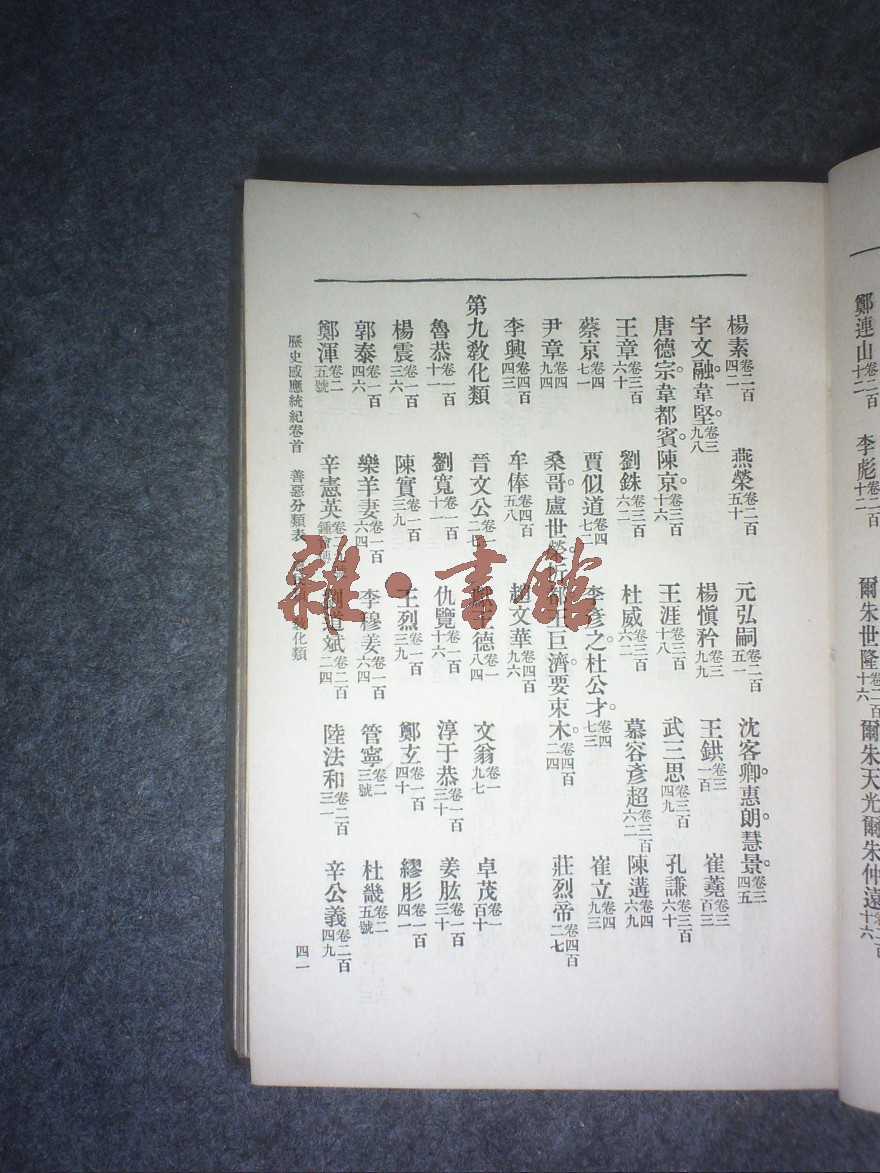 楊素卷二百四二 燕榮卷二百五十 元弘嗣卷二百五一 沈客卿。惠朗。慧景。卷三四五
宇文融。韋堅。卷三九八 楊愼矜卷三九九 王鉷卷三一百 崔蕘卷三百三
唐德宗。韋都賓。陳京。卷三百十六 王涯卷三百十八 武三思卷三百四九 孔謙卷三百六十
王章卷三百六十 劉銖卷三百六二 杜威卷三百六二 慕容彥超卷三百六二 陳遘卷四六九
蔡京卷四七一 賈似道卷四七二 李彥之。杜公才。卷四七三 崔立卷四九三
尹章卷四九四 桑哥。盧世榮。都王巨濟。要束木。卷四百二四 莊烈帝卷四百二七
李興卷四百四三 牟俸卷四百五八 趙文華卷四百九六
第九教化類 晉文公卷一二七 德卷一八四 文翁卷一九七 卓茂卷一百十
魯恭卷一百十一 劉寬卷一百十一 仇覽卷一百十六 淳于恭卷一百三十 姜肱卷一百三十
楊震卷一百三六 陳實卷一百三九 王烈卷一百三九 鄭玄卷一百四十 繆肜卷一百四一
郭泰卷一百四六 樂羊妻卷一百六四 李穆姜卷一百六四 管寧卷二三號 杜畿卷二五號
鄭渾卷二五號 辛憲英 劉道斌卷二百二四 陸法和卷二百三一 辛公義卷二百四九
歷史感應統紀卷首 善惡分類表 教化類 四一
雜·書館
鄭連山卷二百十二 李彪卷二百十二 爾朱世隆卷二百十六 爾朱天光爾朱仲遠卷二百十六